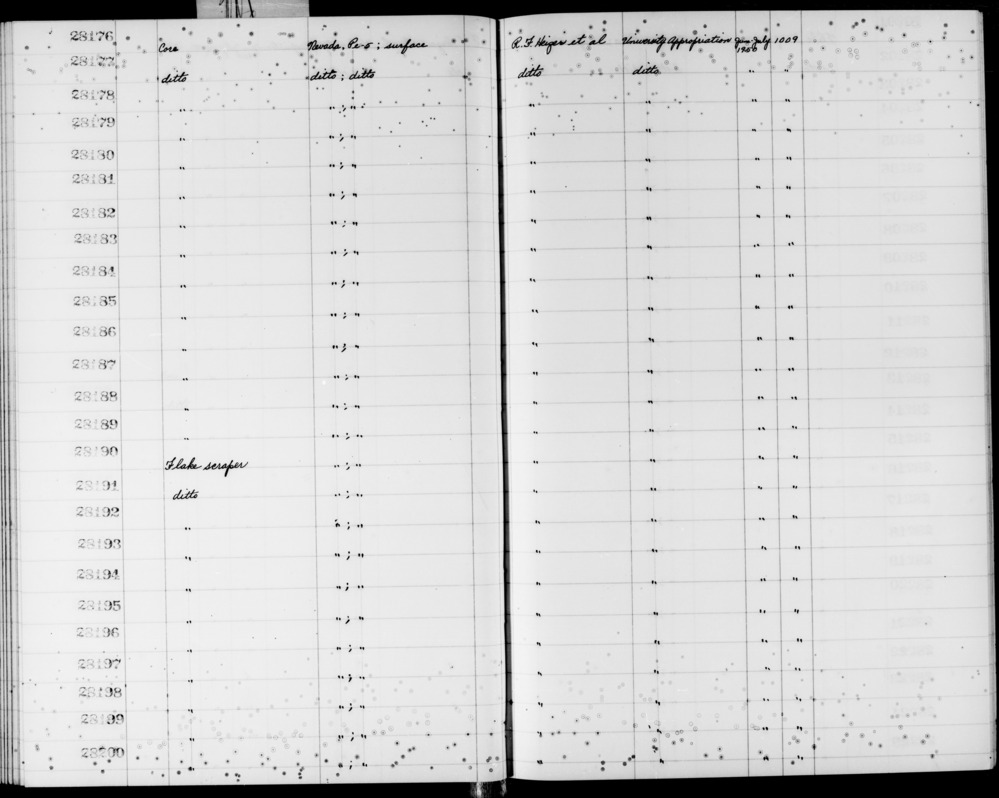 28176 Core Nevada, Pe-5; surface R. F. Heizer et al University Appropriation July 1009
28177 ditto ditto; ditto ditto ditto " "
28178 " "; " " " " "
28179 " "; " " " " "
28180 " "; " " " " "
28181 " "; " " " " "
28182 " "; " " " " "
28183 " "; " " " " "
28184 " "; " " " " "
28185 " "; " " " " "
28186 " "; " " " " "
28187 " "; " " " " "
28188 " "; " " " " "
28189 " "; " " " " "
28190 Flake scraper "; " " " " "
28191 ditto "; " " " " "
28192 " "; " " " " "
28193 " "; " " " " "
28194 " "; " " " " "
28195 " "; " " " " "
28196 " "; " " " " "
28197 " "; " " " " "
28198 " "; " " " " "
28199 " "; " " " " "
28200 " "; " " " " "